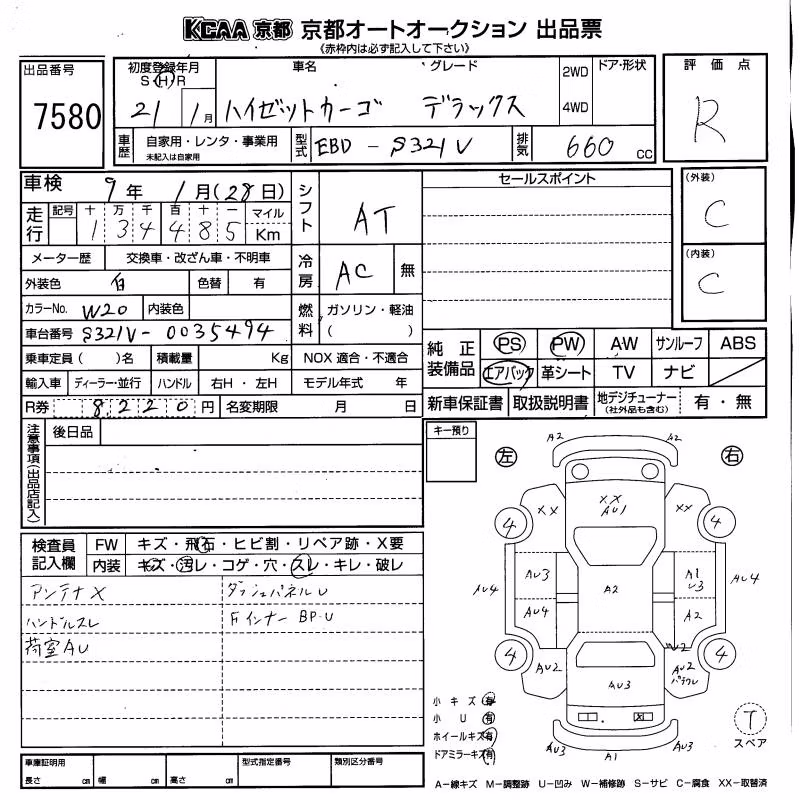 KCAA 京都 京都オートオークション 出品票
《赤枠内は必ず記入して下さい》
出品番号
7580
初度登録年月
S H R
21 1月
車名
グレード
ハイゼットカーゴ デラックス
2WD
4WD
ドア・形状
評価点
R
車歴
自家用・レンタ・事業用
未記入は自家用
型式
EBD-S321V
排気
660 cc
車検
9年 1月(28日)
シフト
AT
セールスポイント
(外装)
C
(内装)
C
走行
記号 十 万 千 百 十 一
1 3 4 4 8 5
マイル
Km
メーター歴 交換車・改ざん車・不明車
冷房
AC
無
外装色 白 色替 有
カラーNo. W20 内装色
燃料
ガソリン・軽油
( )
車台番号 S321V-0035494
乗車定員( )名 積載量 Kg NOX 適合・不適合
輸入車 ディーラー・並行 ハンドル 右H・左H モデル年式 年
R券 8,220円 名変期限 月 日
純正装備品
PS PW AW サンルーフ ABS
エアバック 革シート TV ナビ
新車保証書 取扱説明書 地デジチューナー
(社外品も含む)
有・無
注意事項(出品店記入)
後日品
キー預り
検査員記入欄
FW キズ・飛石・ヒビ割・リペア跡・X要
内装 キズ・汚レ・コゲ・穴・スレ・キレ・破レ
アンテナX
ダッシュパネルU
ハンドルスレ
Fインナー BP.U
荷室AU
左
右
A2 A2
XX
XX
AU1
XX
4 4
AU3
A1
U3
AU4
AU4
A2
AU4
A2
4 4
AU2
W2
AU2
AU3
X
AU3 A1 AU3
小キズ 有
小U 有
ホイールキズ 有
ドアミラーキズ 有
T
スペア
車庫証明用
長さ cm 幅 cm 高さ cm
型式指定番号
類別区分番号
A-線キズ M-調整跡 U-凹み W-補修跡 S-サビ C-腐食 XX-取替済